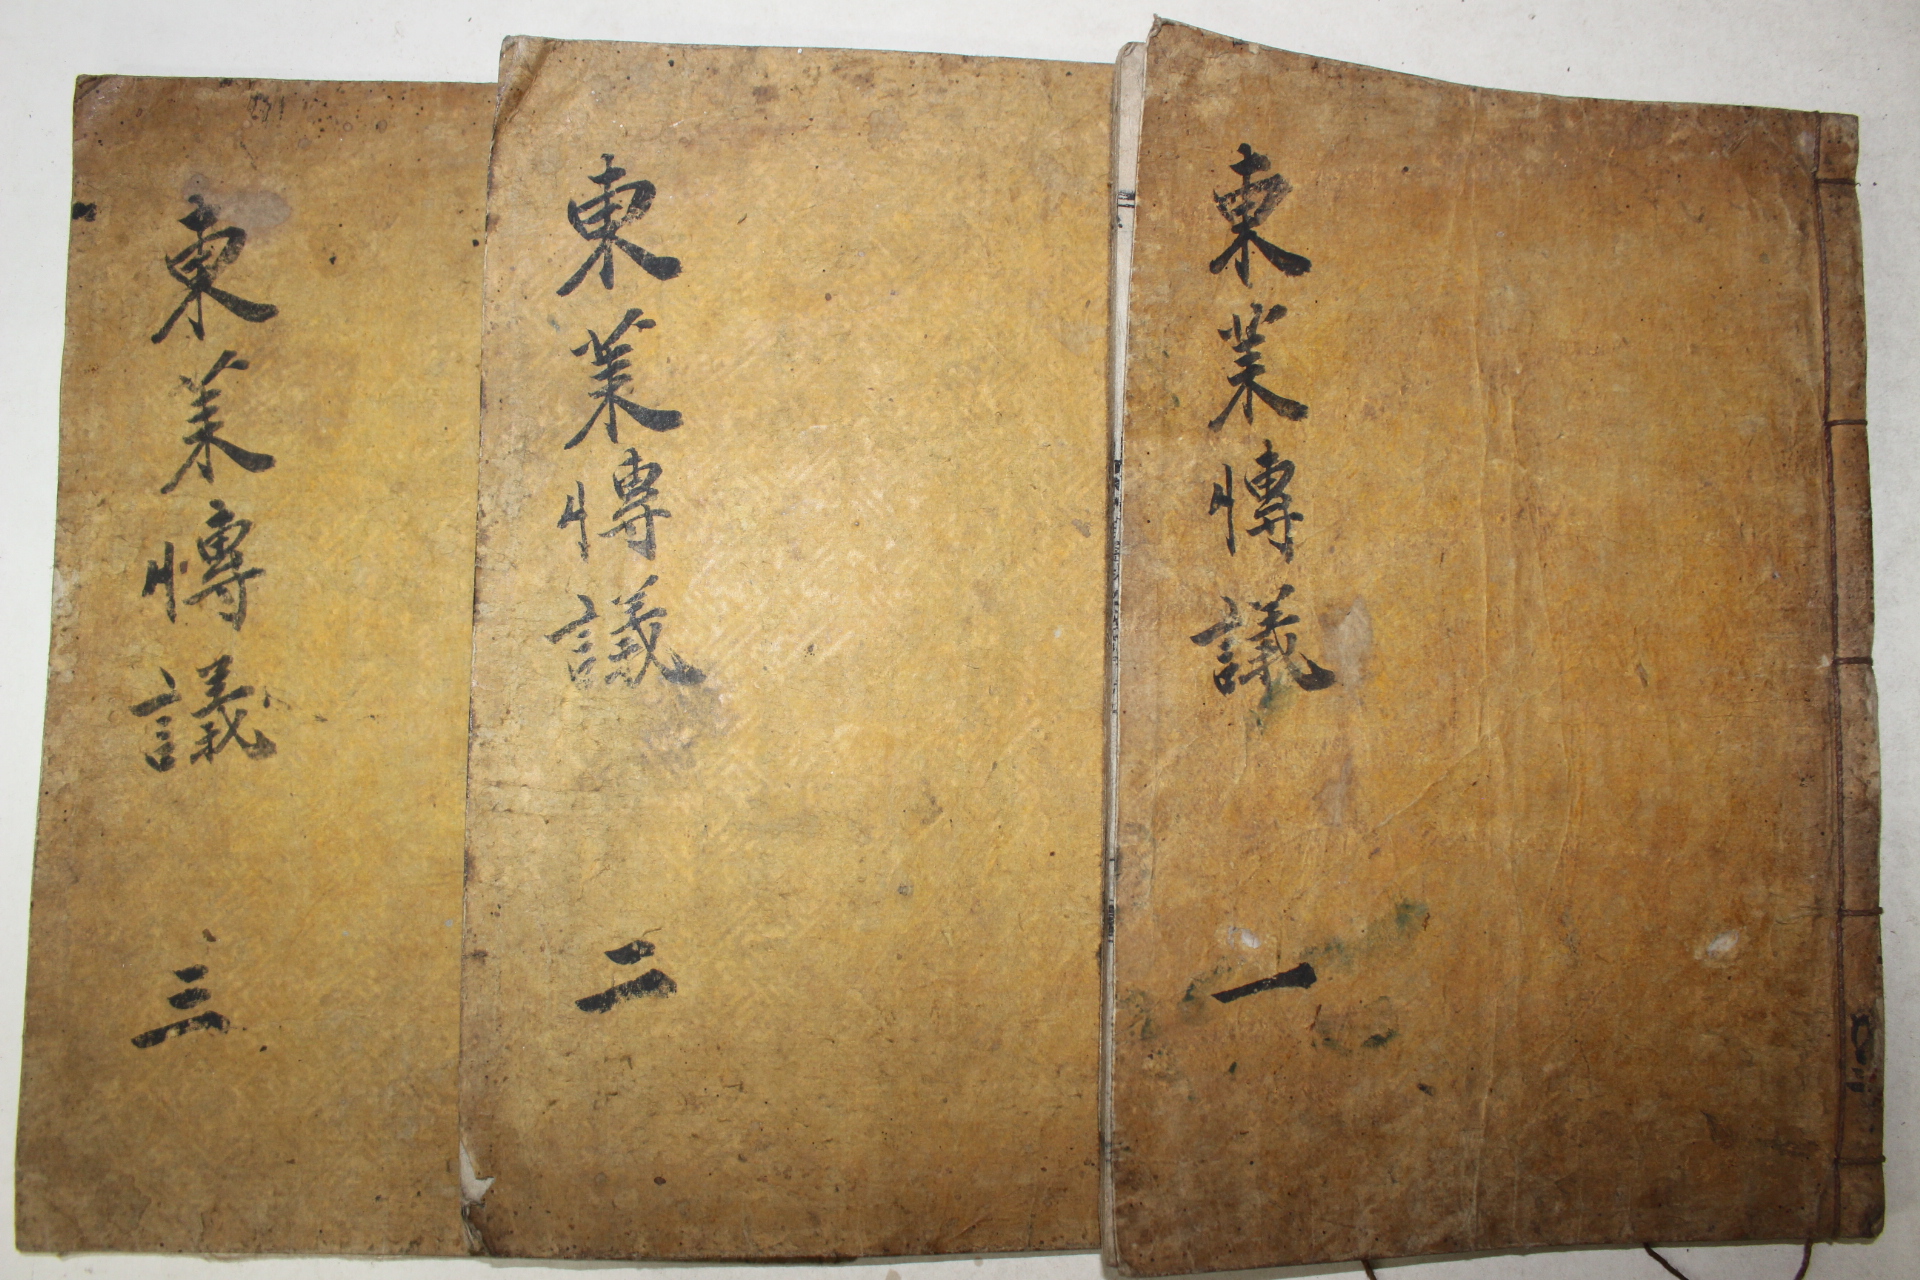 東莱愽議
一
東莱愽議
二
東莱愽議
三